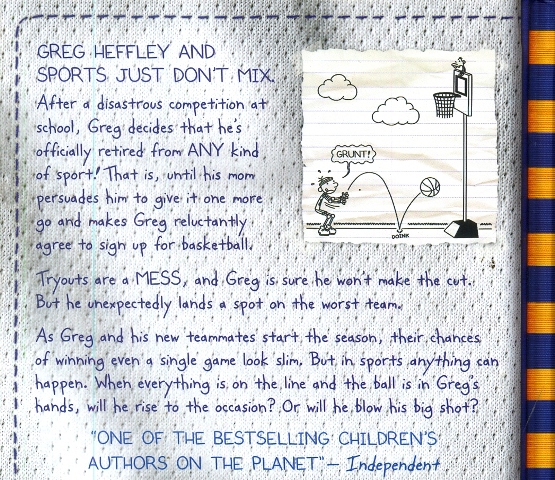 GREG HEFFLEY AND
SPORTS JUST DON'T MIX.
After a disastrous competition at
school, Greg decides that he's
officially retired from ANY kind
of sport! That is, until his mom
persuades him to give it one more
go and makes Greg reluctantly
agree to sign up for basketball.
GRUNT!
DOINK
Tryouts are a MESS, and Greg is sure he won't make the cut.
But he unexpectedly lands a spot on the worst team.
As Greg and his new teammates start the season, their chances
of winning even a single game look slim. But in sports anything can
happen. When everything is on the line and the ball is in Greg's
hands, will he rise to the occasion? Or will he blow his big shot?
"ONE OF THE BESTSELLING CHILDREN'S
AUTHORS ON THE PLANET" – Independent